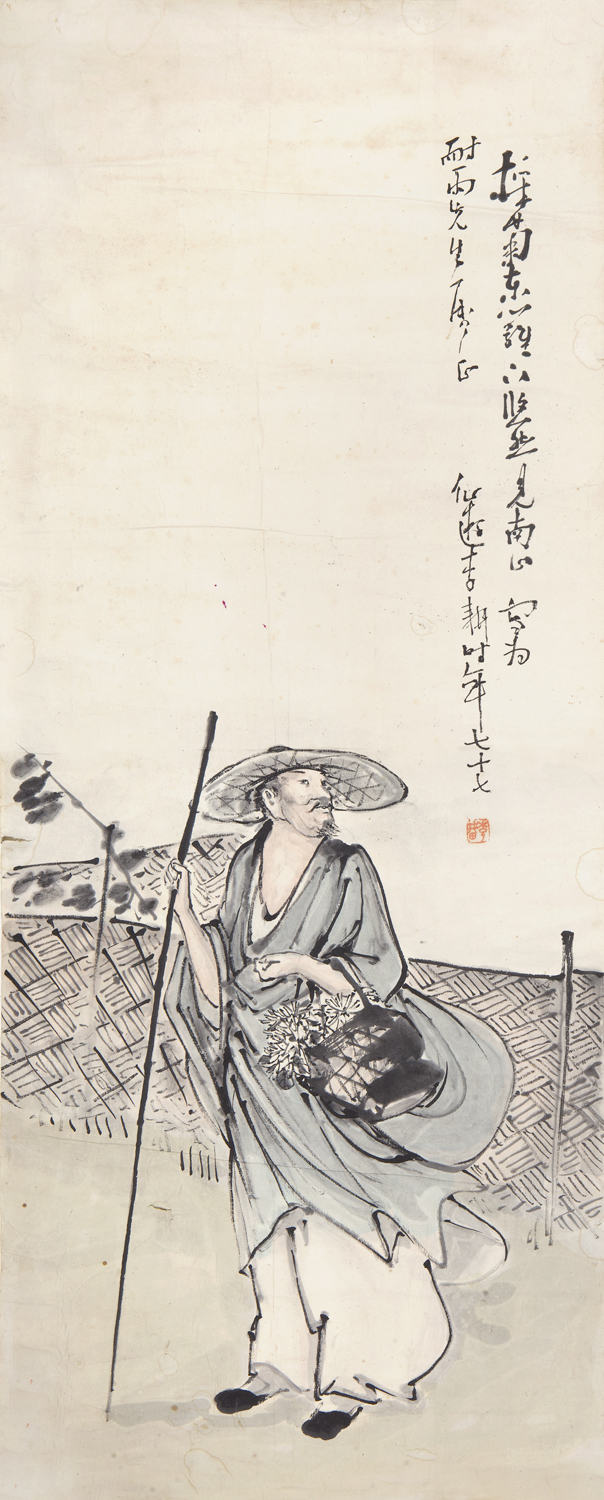 採菊東籬下悠然見南山 寫為
耐雨先生屬正 仙遊李耕時年七十七